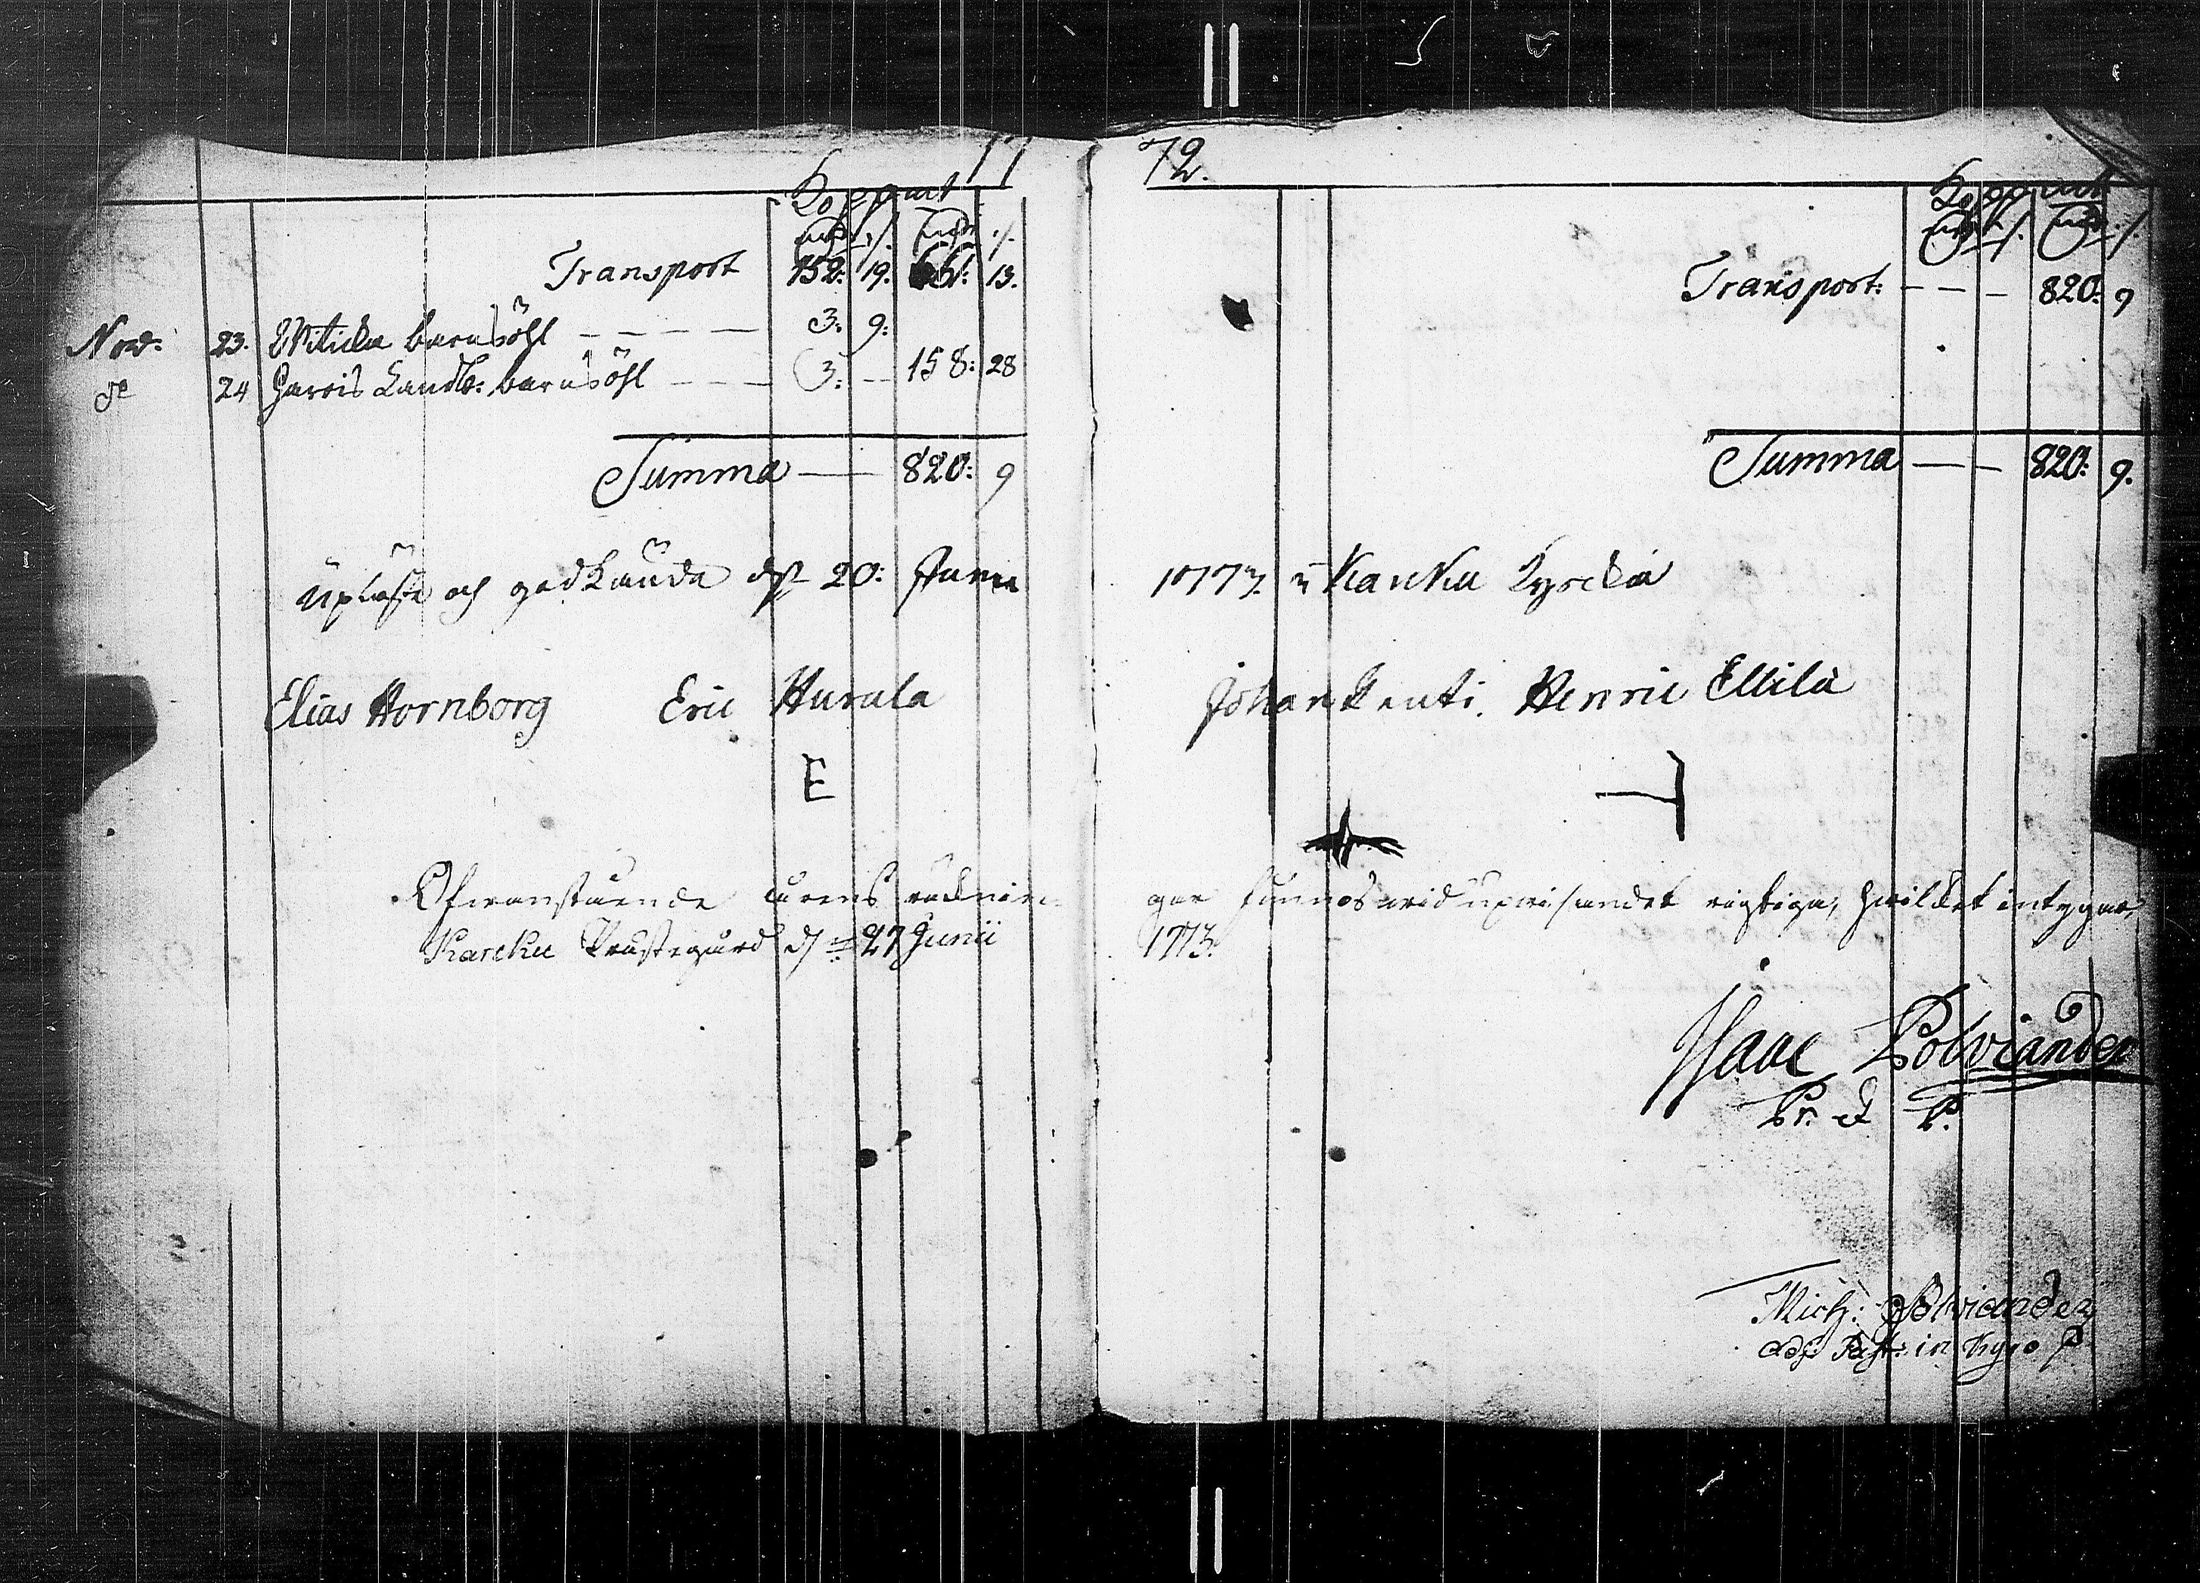 Koppart
Transport 152: 19. 661: 13.
Nov: 23. Witicka barnsöhl — — — — 3: 9:
de 24 Gareis Landb: barnsöhl — — — 3: — 158: 28
Summa — 820: 9
Upläste och godkända d. 20: Juni
Elias Hornborg Eric Hurula
E
Ofwanstående årens räknin-
Karcku Prästegård d. 27 Junii
72.
Koppart
Transport: — — — 820: 9
Summa — — 820: 9.
1773. i Karcku Kyrcka
Johan Penti. Henric Ellilä
gar funnos wid uprisandet rigtiga, hwilket intygar,
1773.
Isaac Polviander
Pr. & P.
Mich: Polviander
Adj: Past: in Kyro